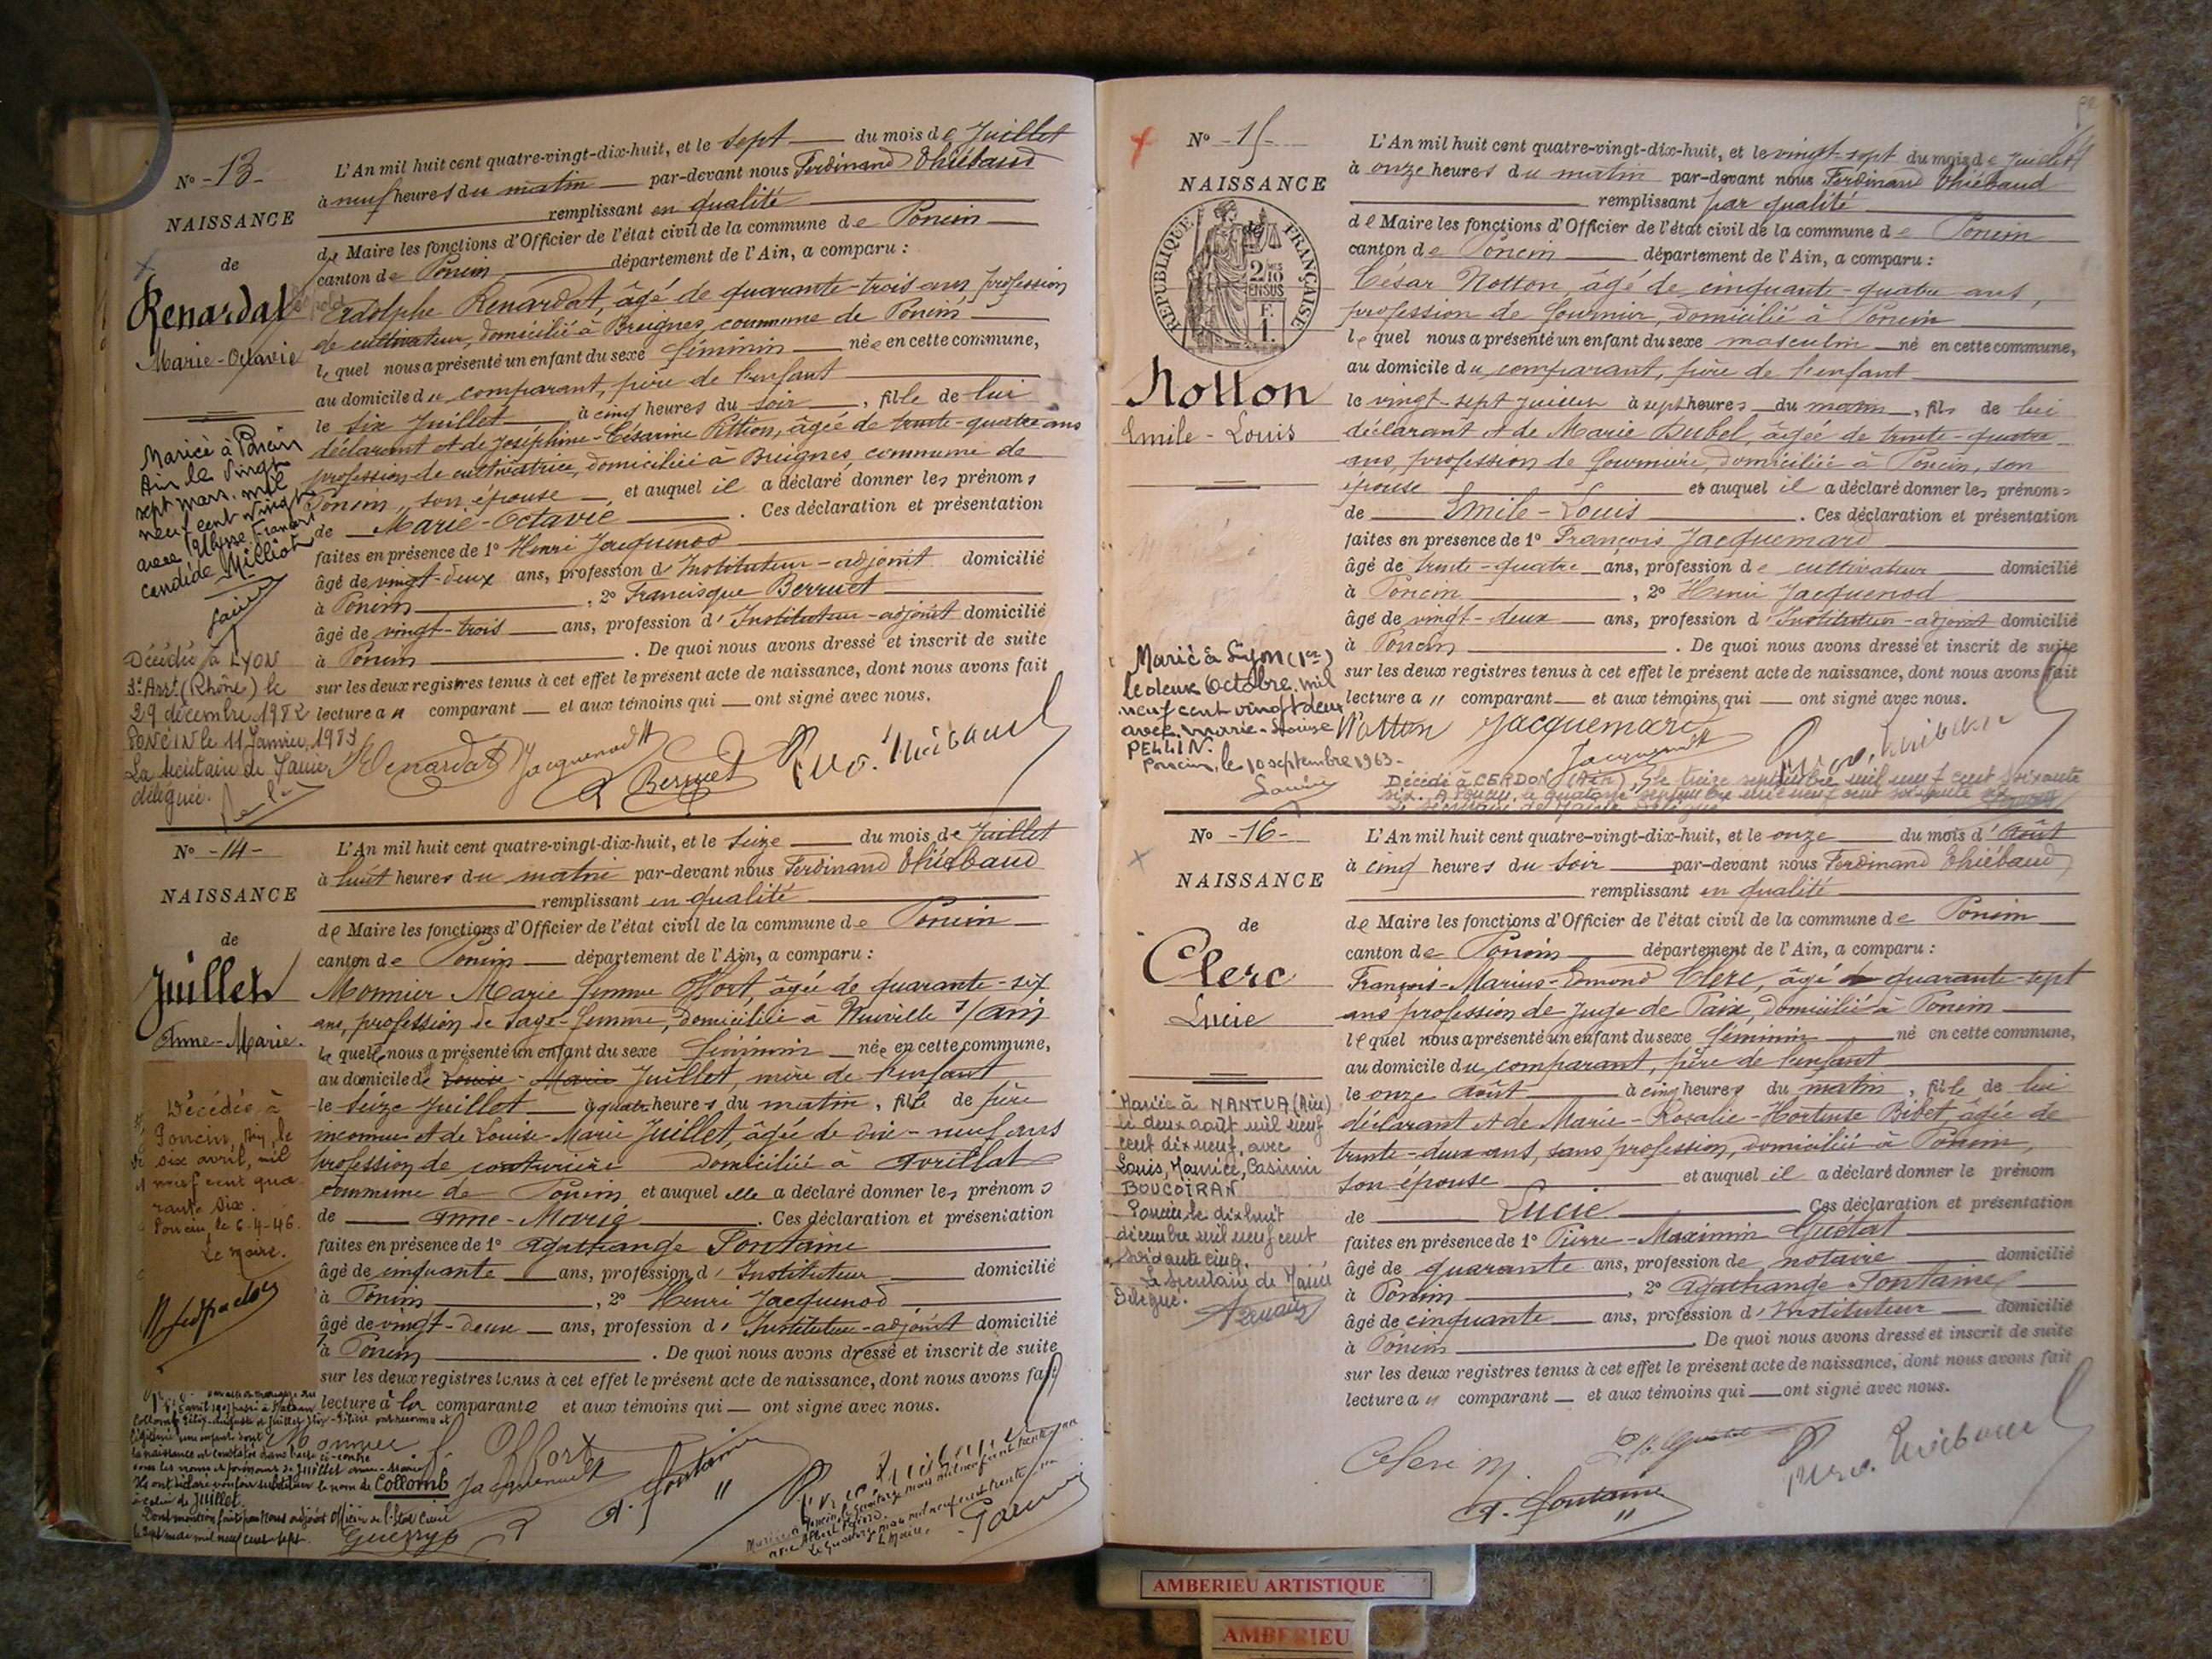 N° -13-
NAISSANCE
de
Renardat
Marie-Octavie
Mariée à Poncin
Ain le vingt
sept mars mil
neuf cent vingt
avec Ulysse
candide Milliat
Décédée à LYON
3e Arrt (Rhône) le
29 décembre 1982
PONCIN le 11 Janvier 1983
La secrétaire de Mairie
déléguée.
L'An mil huit cent quatre-vingt-dix-huit, et le sept du mois de Juillet
à neuf heures du matin par-devant nous Ferdinand Thiébaud
remplissant en qualité
de Maire les fonctions d'Officier de l'état civil de la commune de Poncin
canton de Poncin département de l'Ain, a comparu :
Adolphe Renardat, âgé de quarante-trois ans, profession
de cultivateur, domicilié à Breignes, commune de Poncin
lequel nous a présenté un enfant du sexe féminin née en cette commune,
au domicile du comparant, père de l'enfant
le six Juillet à cinq heures du soir, fille de lui
déclarant et de Joséphine-Césarine Pittion, âgée de trente-quatre ans
profession de cultivatrice, domiciliée à Breignes, commune de
Poncin, son épouse et auquel il a déclaré donner les prénoms
de Marie-Octavie. Ces déclaration et présentation
faites en présence de 1° Henri Jacquenod
âgé de vingt-deux ans, profession d'Instituteur-adjoint domicilié
à Poncin, 2° Francisque Berruet
âgé de vingt-trois ans, profession d'Instituteur-adjoint domicilié
à Poncin. De quoi nous avons dressé et inscrit de suite
sur les deux registres tenus à cet effet le présent acte de naissance, dont nous avons fait
lecture au comparant et aux témoins qui ont signé avec nous.
Renardat Jacquenod H
Berruet Ferd. Thiébaud
N° -14-
NAISSANCE
de
Juillet
Anne-Marie.
Décédée à
Poncin, Ain, le
six avril, mil
neuf cent qua-
rante six.
Poncin, le 6-4-46.
Le maire.
L'An mil huit cent quatre-vingt-dix-huit, et le seize du mois de Juillet
à huit heures du matin par-devant nous Ferdinand Thiébaud
remplissant en qualité
de Maire les fonctions d'Officier de l'état civil de la commune de Poncin
canton de Poncin département de l'Ain, a comparu :
Monnier Marie femme Offort, âgée de quarante-six
ans, profession de Sage-femme, domiciliée à Neuville s/ Ain
laquelle nous a présenté un enfant du sexe féminin née en cette commune,
au domicile de Louise-Marie Juillet, mère de l'enfant
le seize Juillet à quatre heures du matin, fille de père
inconnu et de Louise-Marie Juillet, âgée de dix-neuf ans
profession de couturière domiciliée à Avrillat
commune de Poncin et auquel elle a déclaré donner les prénoms
de Anne-Marie. Ces déclaration et présentation
faites en présence de 1° Agathange Fontaine
âgé de cinquante ans, profession d'Instituteur domicilié
à Poncin, 2° Henri Jacquenod
âgé de vingt-deux ans, profession d'Instituteur-adjoint domicilié
à Poncin. De quoi nous avons dressé et inscrit de suite
sur les deux registres tenus à cet effet le présent acte de naissance, dont nous avons fait
lecture à la comparante et aux témoins qui ont signé avec nous.
Monnier f. Offort
Jacquenod H A. Fontaine
la naissance est constatée dans l'acte ci-contre
sous les noms et prénoms de Juillet Anne-Marie
Ils ont déclaré vouloir substituer le nom de Collomb
à celui de Juillet.
Dont mention faite par Nous adjoint Officier de l'État Civil
mai mil neuf cent sept.
Mariée à Poncin, le quatorze mars mil neuf cent trente un
avec Albert
Le quatorze mars mil neuf cent trente un
Le Maire.
N° -15-
NAISSANCE
de
RÉPUBLIQUE FRANÇAISE
2/10
EN SUS
F.
1.
Notton
Emile-Louis
Marié à Lyon (1er)
le deux Octobre mil
neuf cent vingt deux
avec Marie-Louise
PELLIN.
Poncin, le 10 septembre 1963.
L'An mil huit cent quatre-vingt-dix-huit, et le vingt-sept du mois de Juillet
à onze heures du matin par-devant nous Ferdinand Thiébaud
remplissant par qualité
de Maire les fonctions d'Officier de l'état civil de la commune de Poncin
canton de Poncin département de l'Ain, a comparu :
César Notton, âgé de cinquante-quatre ans,
profession de fournier, domicilié à Poncin
lequel nous a présenté un enfant du sexe masculin né en cette commune,
au domicile du comparant, père de l'enfant
le vingt-sept Juillet à sept heures du matin, fils de lui
déclarant et de Marie Dubel, âgée de trente-quatre
ans, profession de fournière, domiciliée à Poncin, son
épouse et auquel il a déclaré donner les prénoms
de Emile-Louis. Ces déclaration et présentation
faites en présence de 1° François Jacquemard
âgé de trente-quatre ans, profession de cultivateur domicilié
à Poncin, 2° Henri Jacquenod
âgé de vingt-deux ans, profession d'Instituteur-adjoint domicilié
à Poncin. De quoi nous avons dressé et inscrit de suite
sur les deux registres tenus à cet effet le présent acte de naissance, dont nous avons fait
lecture au comparant et aux témoins qui ont signé avec nous.
Notton Jacquemard
Jacquenod H Ferd. Thiébaud
Décédé à CERDON (Ain), le treize septembre mil neuf cent soixante
six. A Poncin, le quatorze septembre mil neuf cent soixante six
Le secrétaire de Mairie Délégué
N° -16-
NAISSANCE
de
Clerc
Lucie
Mariée à NANTUA (Ain)
le deux août mil neuf
cent dix neuf, avec
Louis, Maurice, Casimir
BOUCOIRAN
Poncin le dix huit
décembre mil neuf cent
soixante cinq.
Le secrétaire de Mairie
Délégué.
L'An mil huit cent quatre-vingt-dix-huit, et le onze du mois d'Août
à cinq heures du soir par-devant nous Ferdinand Thiébaud
remplissant en qualité
de Maire les fonctions d'Officier de l'état civil de la commune de Poncin
canton de Poncin département de l'Ain, a comparu :
François-Marius-Edmond Clerc, âgé de quarante-sept
ans profession de Juge de Paix, domicilié à Poncin
lequel nous a présenté un enfant du sexe féminin né en cette commune,
au domicile du comparant, père de l'enfant
le onze Août à cinq heures du matin, fille de lui
déclarant et de Marie-Rosalie-Hortense Bibet âgée de
trente-deux ans, sans profession, domiciliée à Poncin,
son épouse et auquel il a déclaré donner le prénom
de Lucie Ces déclaration et présentation
faites en présence de 1° Pierre-Maximin Guétat
âgé de quarante ans, profession de notaire domicilié
à Poncin, 2° Agathange Fontaine
âgé de cinquante ans, profession d'Instituteur domicilié
à Poncin. De quoi nous avons dressé et inscrit de suite
sur les deux registres tenus à cet effet le présent acte de naissance, dont nous avons fait
lecture au comparant et aux témoins qui ont signé avec nous.
Clerc M.
A. Fontaine Ferd. Thiébaud
AMBERIEU ARTISTIQUE
AMBERIEU